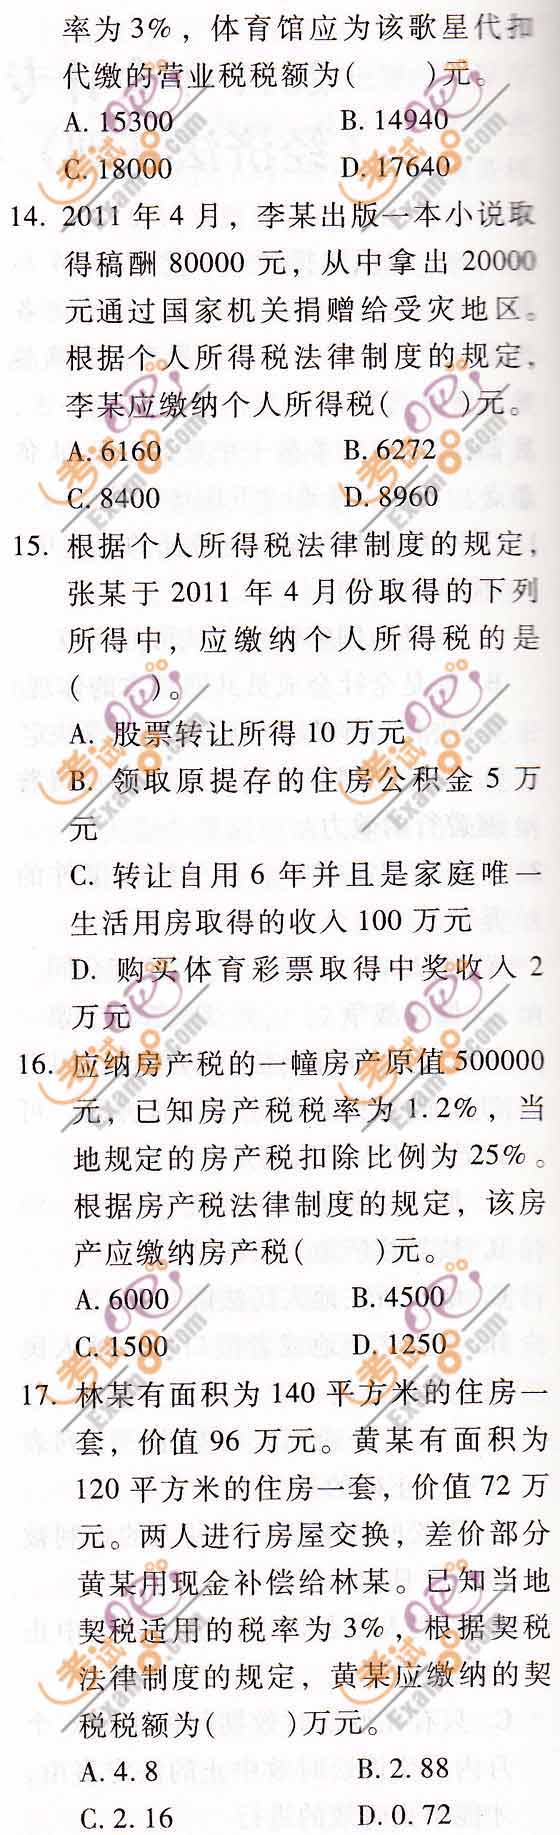 率为3%，体育馆应为该歌星代扣
代缴的营业税税额为(　　)元。
A. 15300　　B. 14940
C. 18000　　D. 17640
14. 2011 年 4 月，李某出版一本小说取
得稿酬 80000 元，从中拿出 20000
元通过国家机关捐赠给受灾地区。
根据个人所得税法律制度的规定，
李某应缴纳个人所得税(　　)元。
A. 6160　　B. 6272
C. 8400　　D. 8960
15. 根据个人所得税法律制度的规定，
张某于 2011 年 4 月份取得的下列
所得中，应缴纳个人所得税的是
(　　)。
A. 股票转让所得 10 万元
B. 领取原提存的住房公积金 5 万
元
C. 转让自用 6 年并且是家庭唯一
生活用房取得的收入 100 万元
D. 购买体育彩票取得中奖收入 2
万元
16. 应纳房产税的一幢房产原值 500000
元，已知房产税税率为 1.2%，当
地规定的房产税扣除比例为 25%。
根据房产税法律制度的规定，该房
产应缴纳房产税(　　)元。
A. 6000　　B. 4500
C. 1500　　D. 1250
17. 林某有面积为 140 平方米的住房一
套，价值 96 万元。黄某有面积为
120 平方米的住房一套，价值 72 万
元。两人进行房屋交换，差价部分
黄某用现金补偿给林某。已知当地
契税适用的税率为 3%，根据契税
法律制度的规定，黄某应缴纳的契
税税额为(　　)万元。
A. 4. 8　　B. 2. 88
C. 2. 16　　D. 0. 72
考试吧
Exam8.com